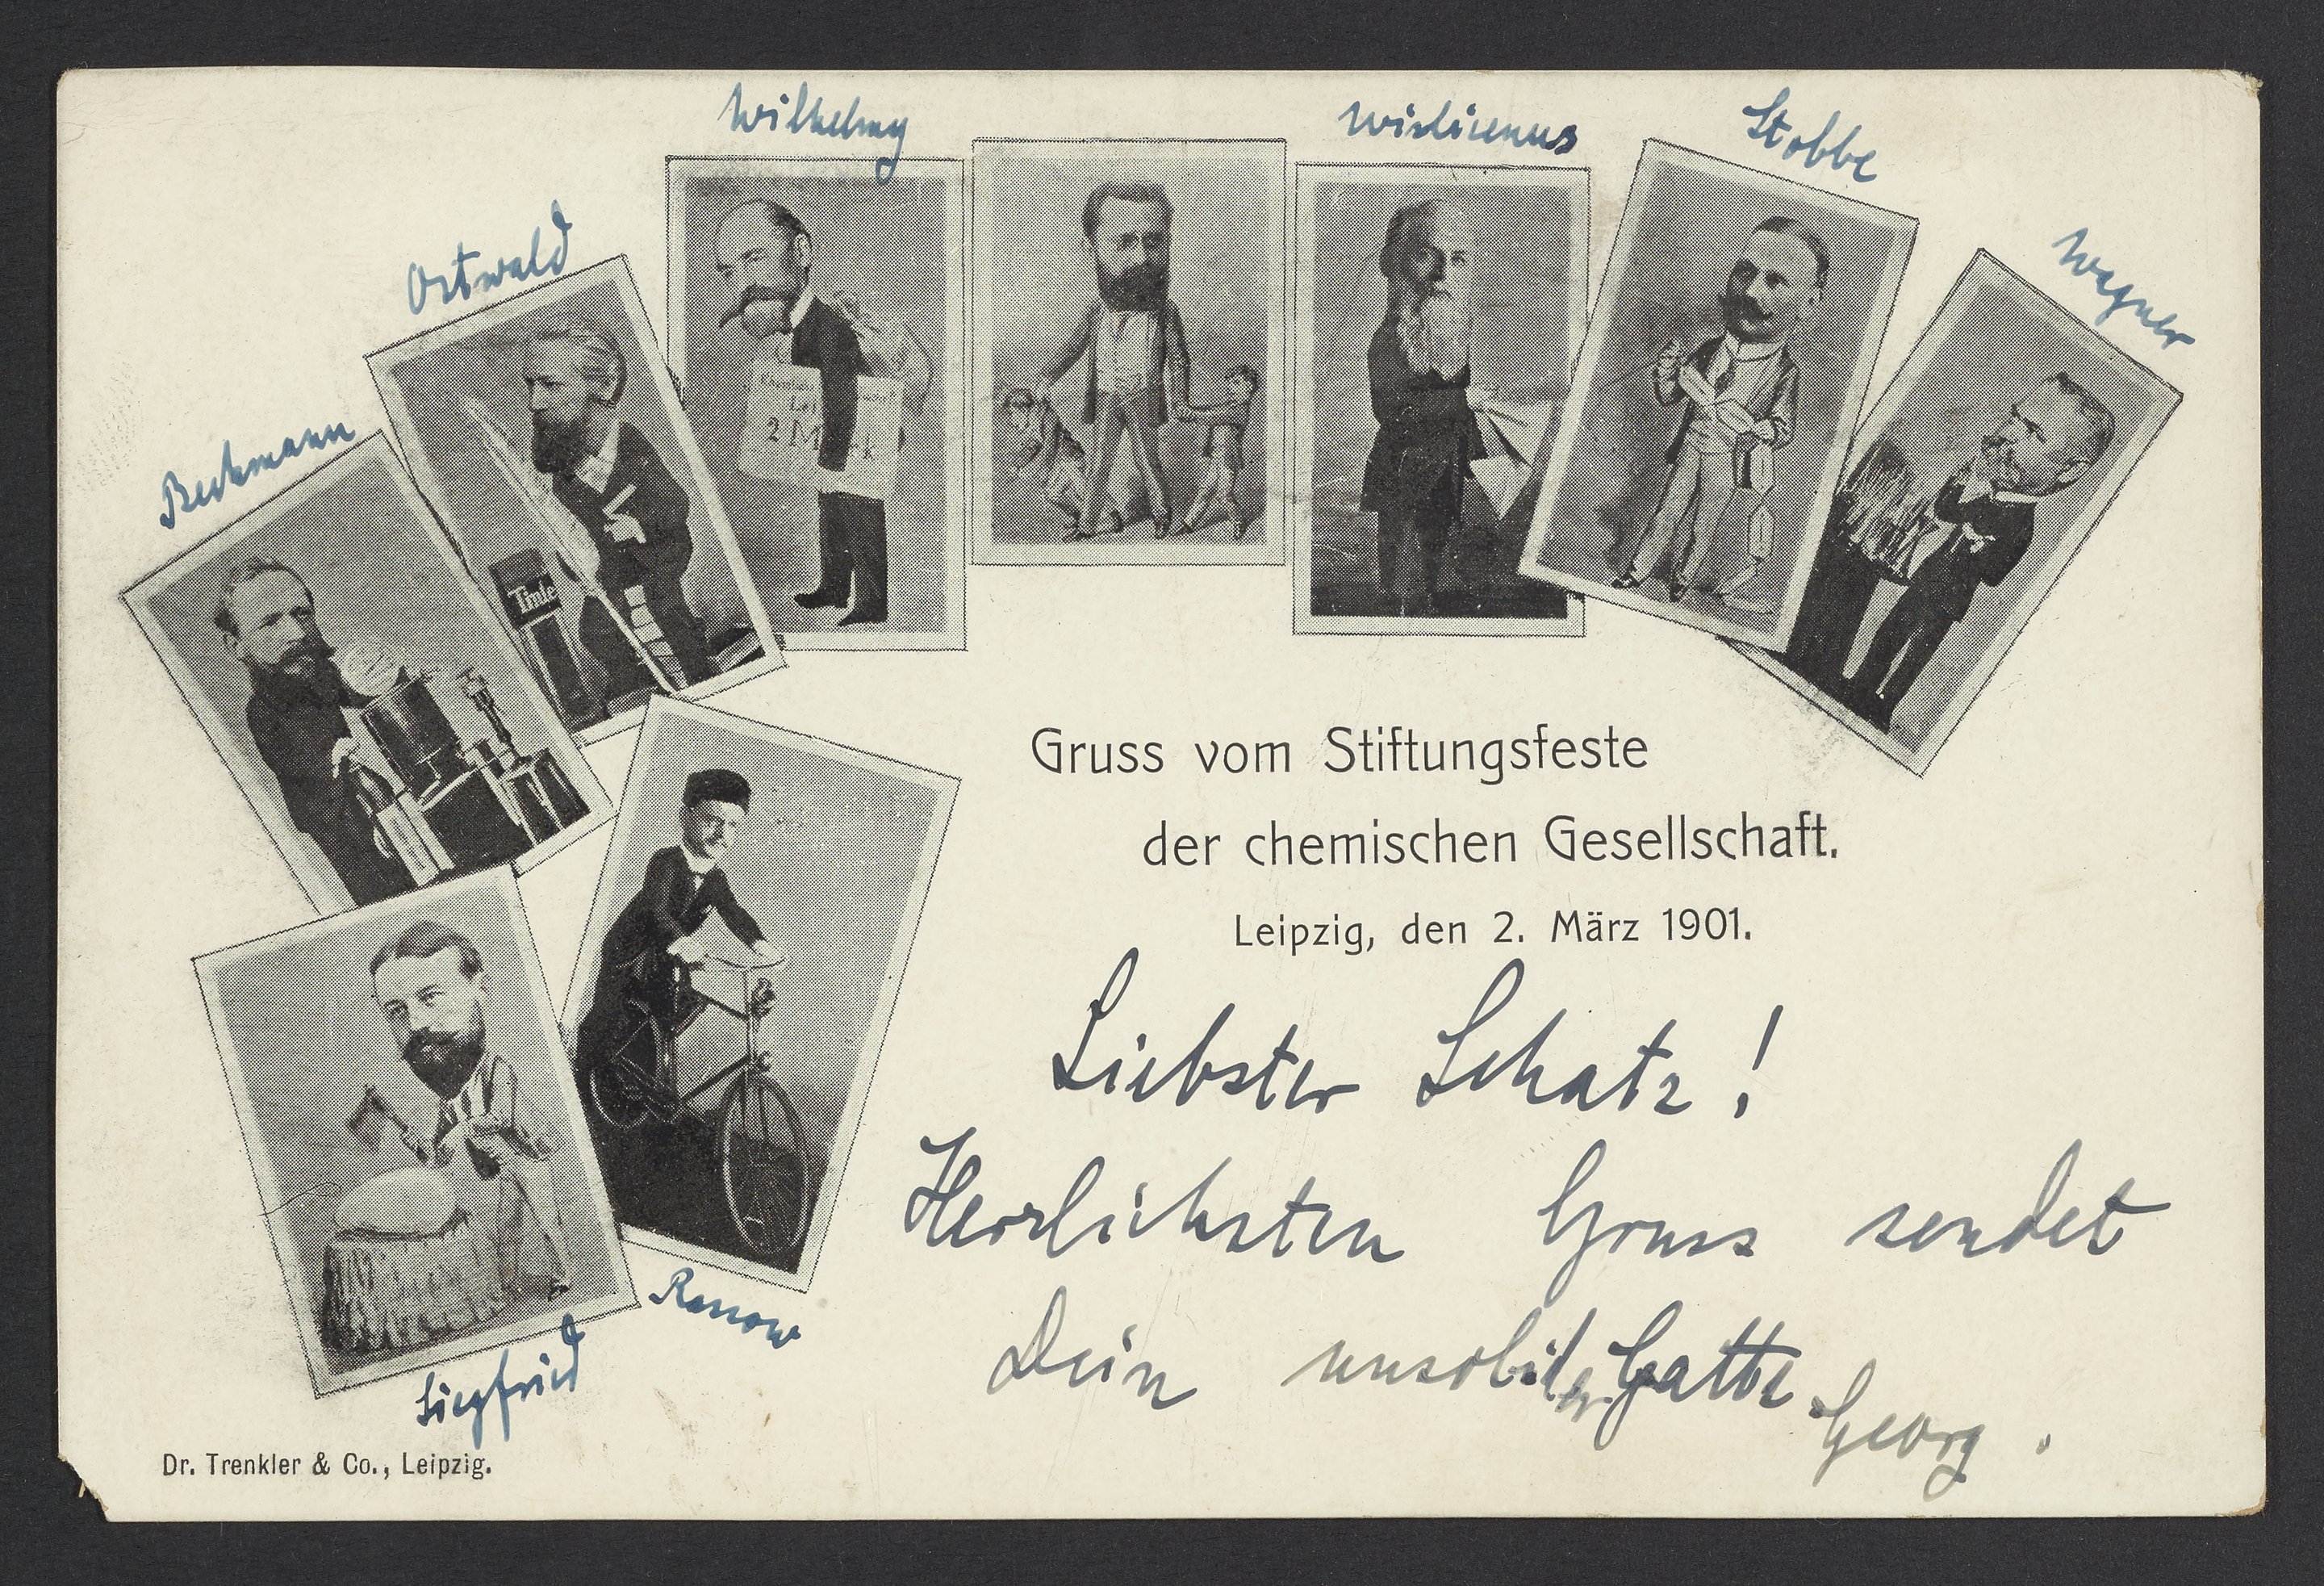 Wilhelmy
Wislicenus
Stobbe
Ostwald
Wagner
Beckmann
2 M k
Tinte
Gruss vom Stiftungsfeste
der chemischen Gesellschaft.
Leipzig, den 2. März 1901.
Liebster Schatz!
Herzlichsten Gruss sendet
Dein unsolider Gatte Georg.
Rassow
Siegfried
Dr. Trenkler & Co., Leipzig.